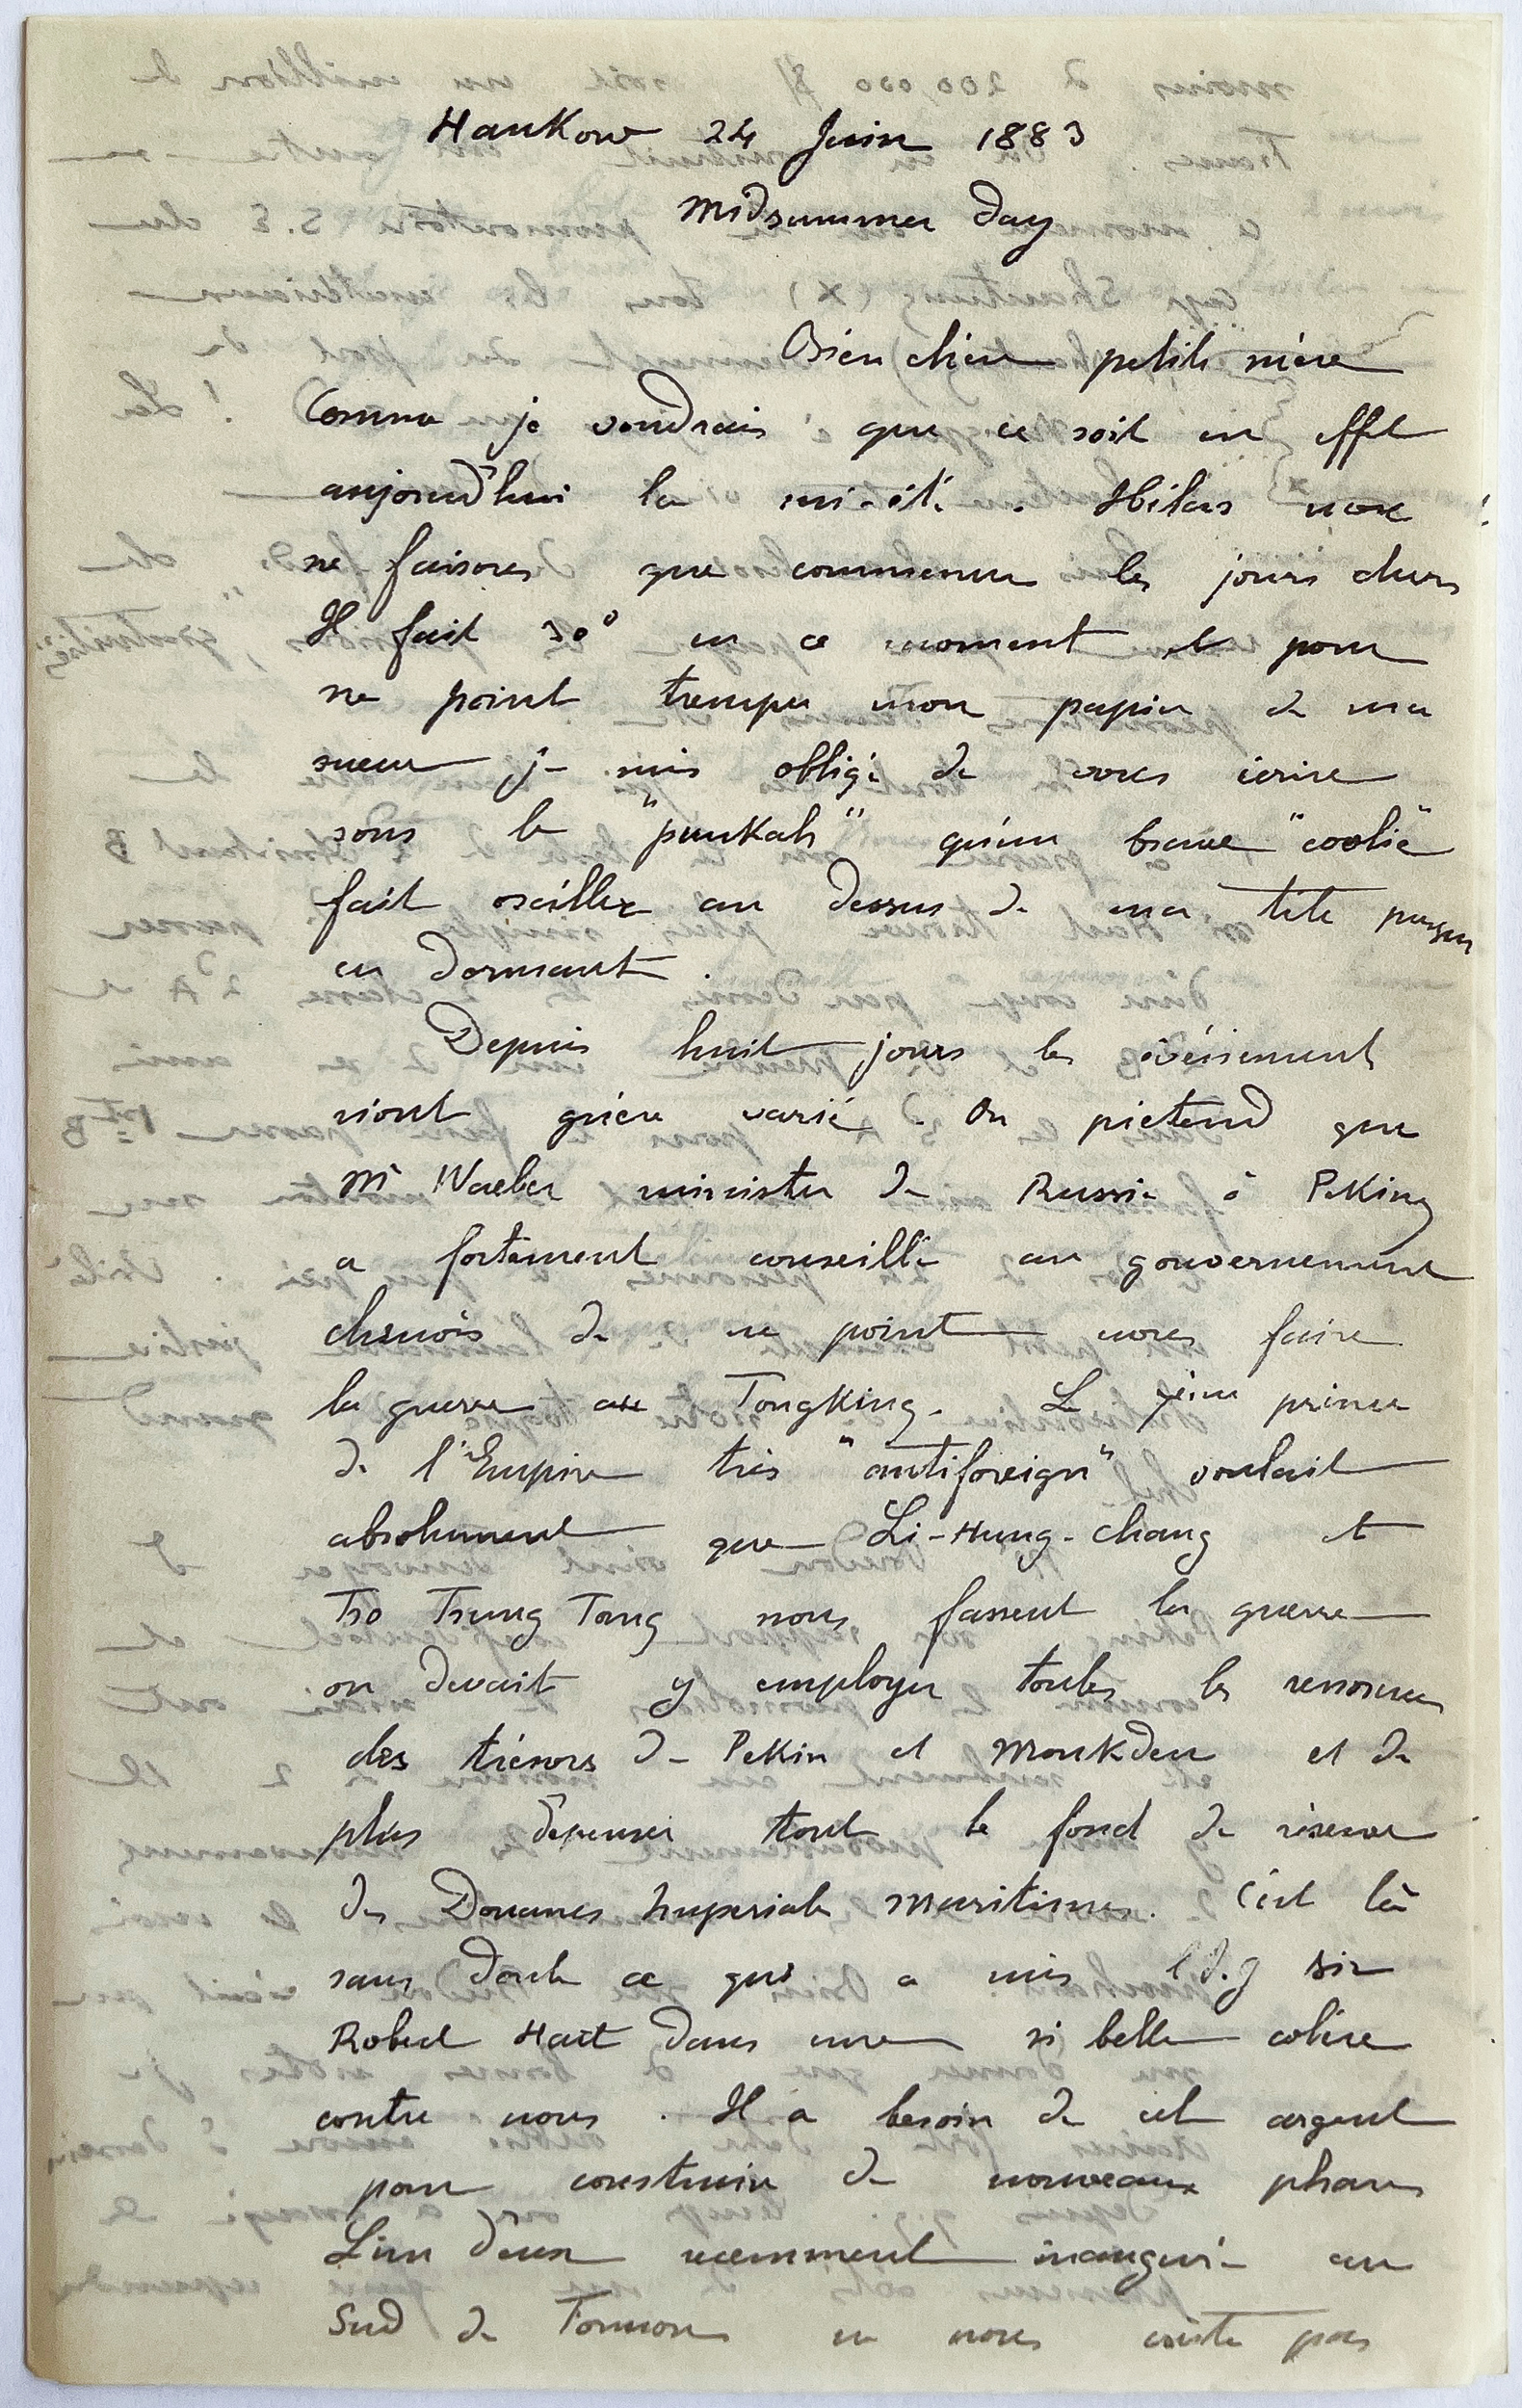 Hankow 24 Juin 1883
Midsummer Day
Bien chère petite mère
Comme je voudrais que ce soit en effet
aujourd'hui la mi-été. Hélas nous
ne faisons que commencer les jours durs
Il fait 30° en ce moment et pour
ne point tremper mon papier de ma
sueur je suis obligé de vous écrire
sous le "punkah" qu'un brave "coolie"
fait osciller au dessus de ma tête presque
en dormant.
Depuis huit jours les événements
n'ont guère varié. On prétend que
Mr Waeber ministre de Russie à Peking
a fortement conseillé au gouvernement
chinois de ne point nous faire
la guerre au Tongking. Le 7ème prince
de l'Empire très "antiforeign" voulait
absolument que Li-Hung-Chang et
Tso Tsung Tang nous fassent la guerre
on devait y employer toutes les ressources
des trésors de Pekin et Moukden et de
plus dépenser tout le fond de réserve
des Douanes Imperiales Maritimes. C'est là
sans doute ce qui a mis l'I.G Sir
Robert Hart dans une si belle colère
contre nous. Il a besoin de cet argent
pour construire de nouveaux phares
L'un d'eux récemment inauguré au
Sud de Formose ne nous coûte pas